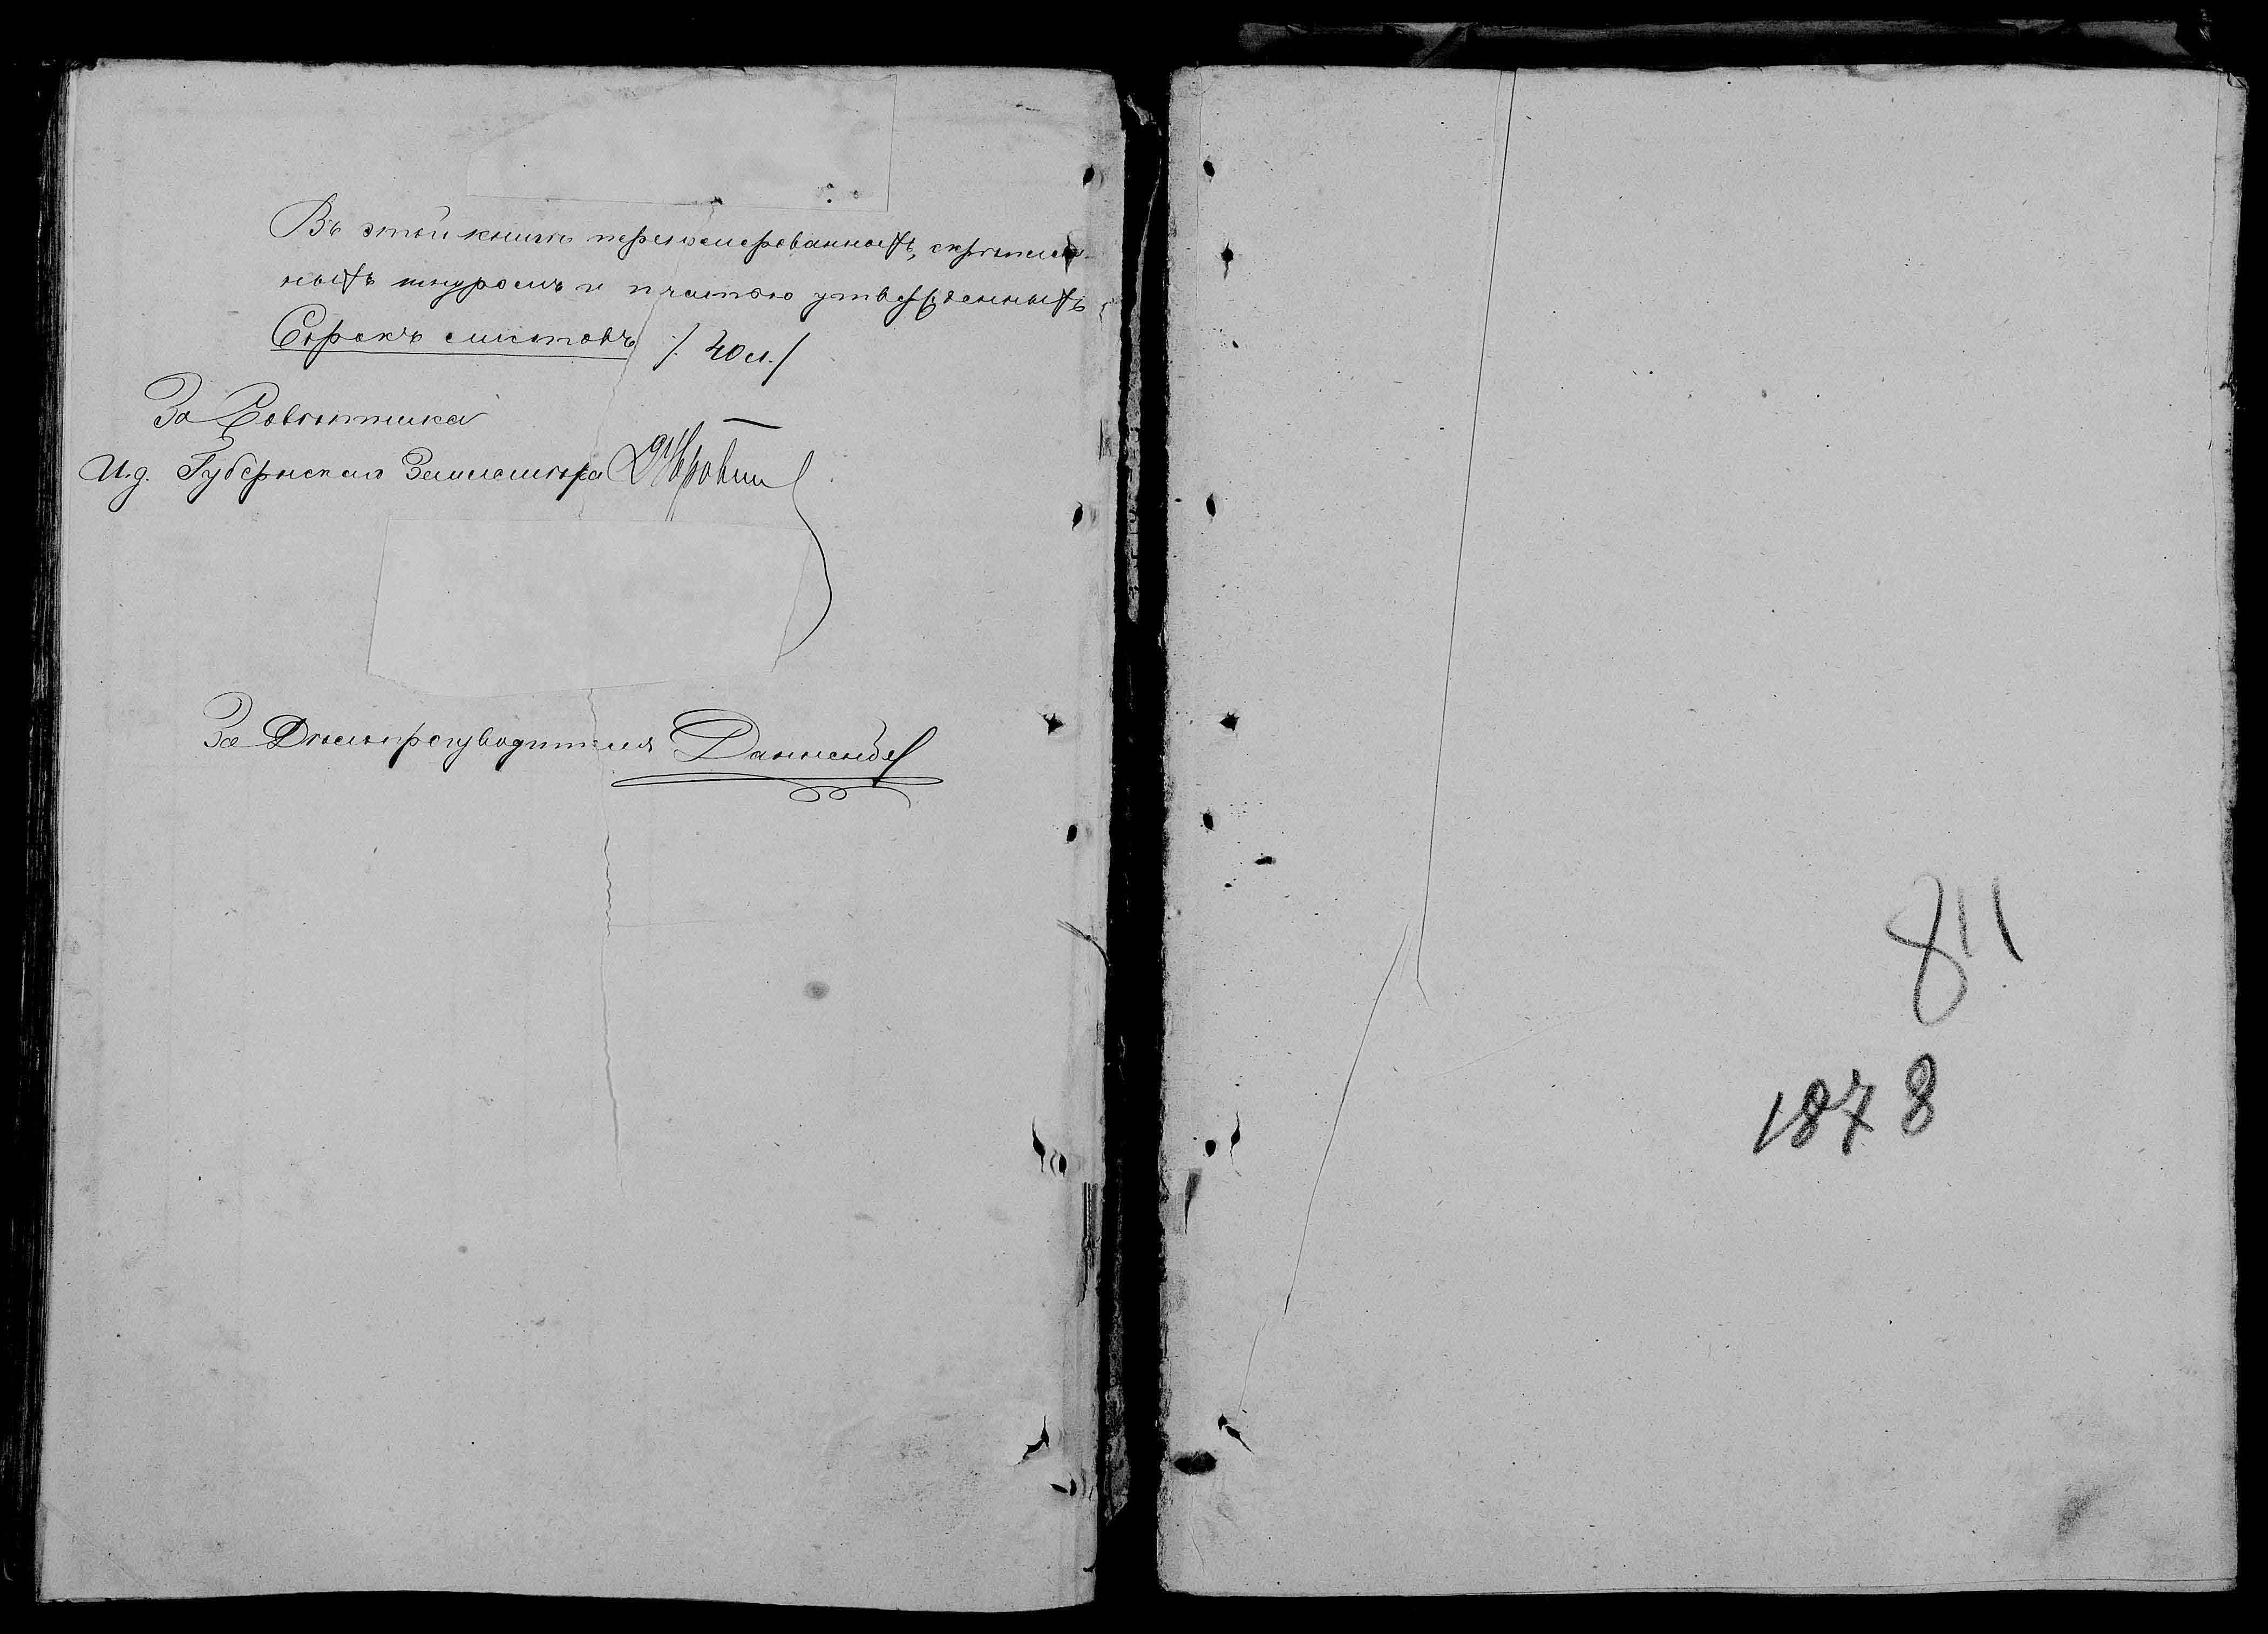 Въ этой книгѣ перенумерованныхъ, скрѣплен-
ныхъ шнуромъ и печатью утвержденныхъ
Сорокъ листовъ /40 л./
За Совѣтника
И.д. Губернскаго Землемѣра
За Дѣлопроизводителя
811
1878